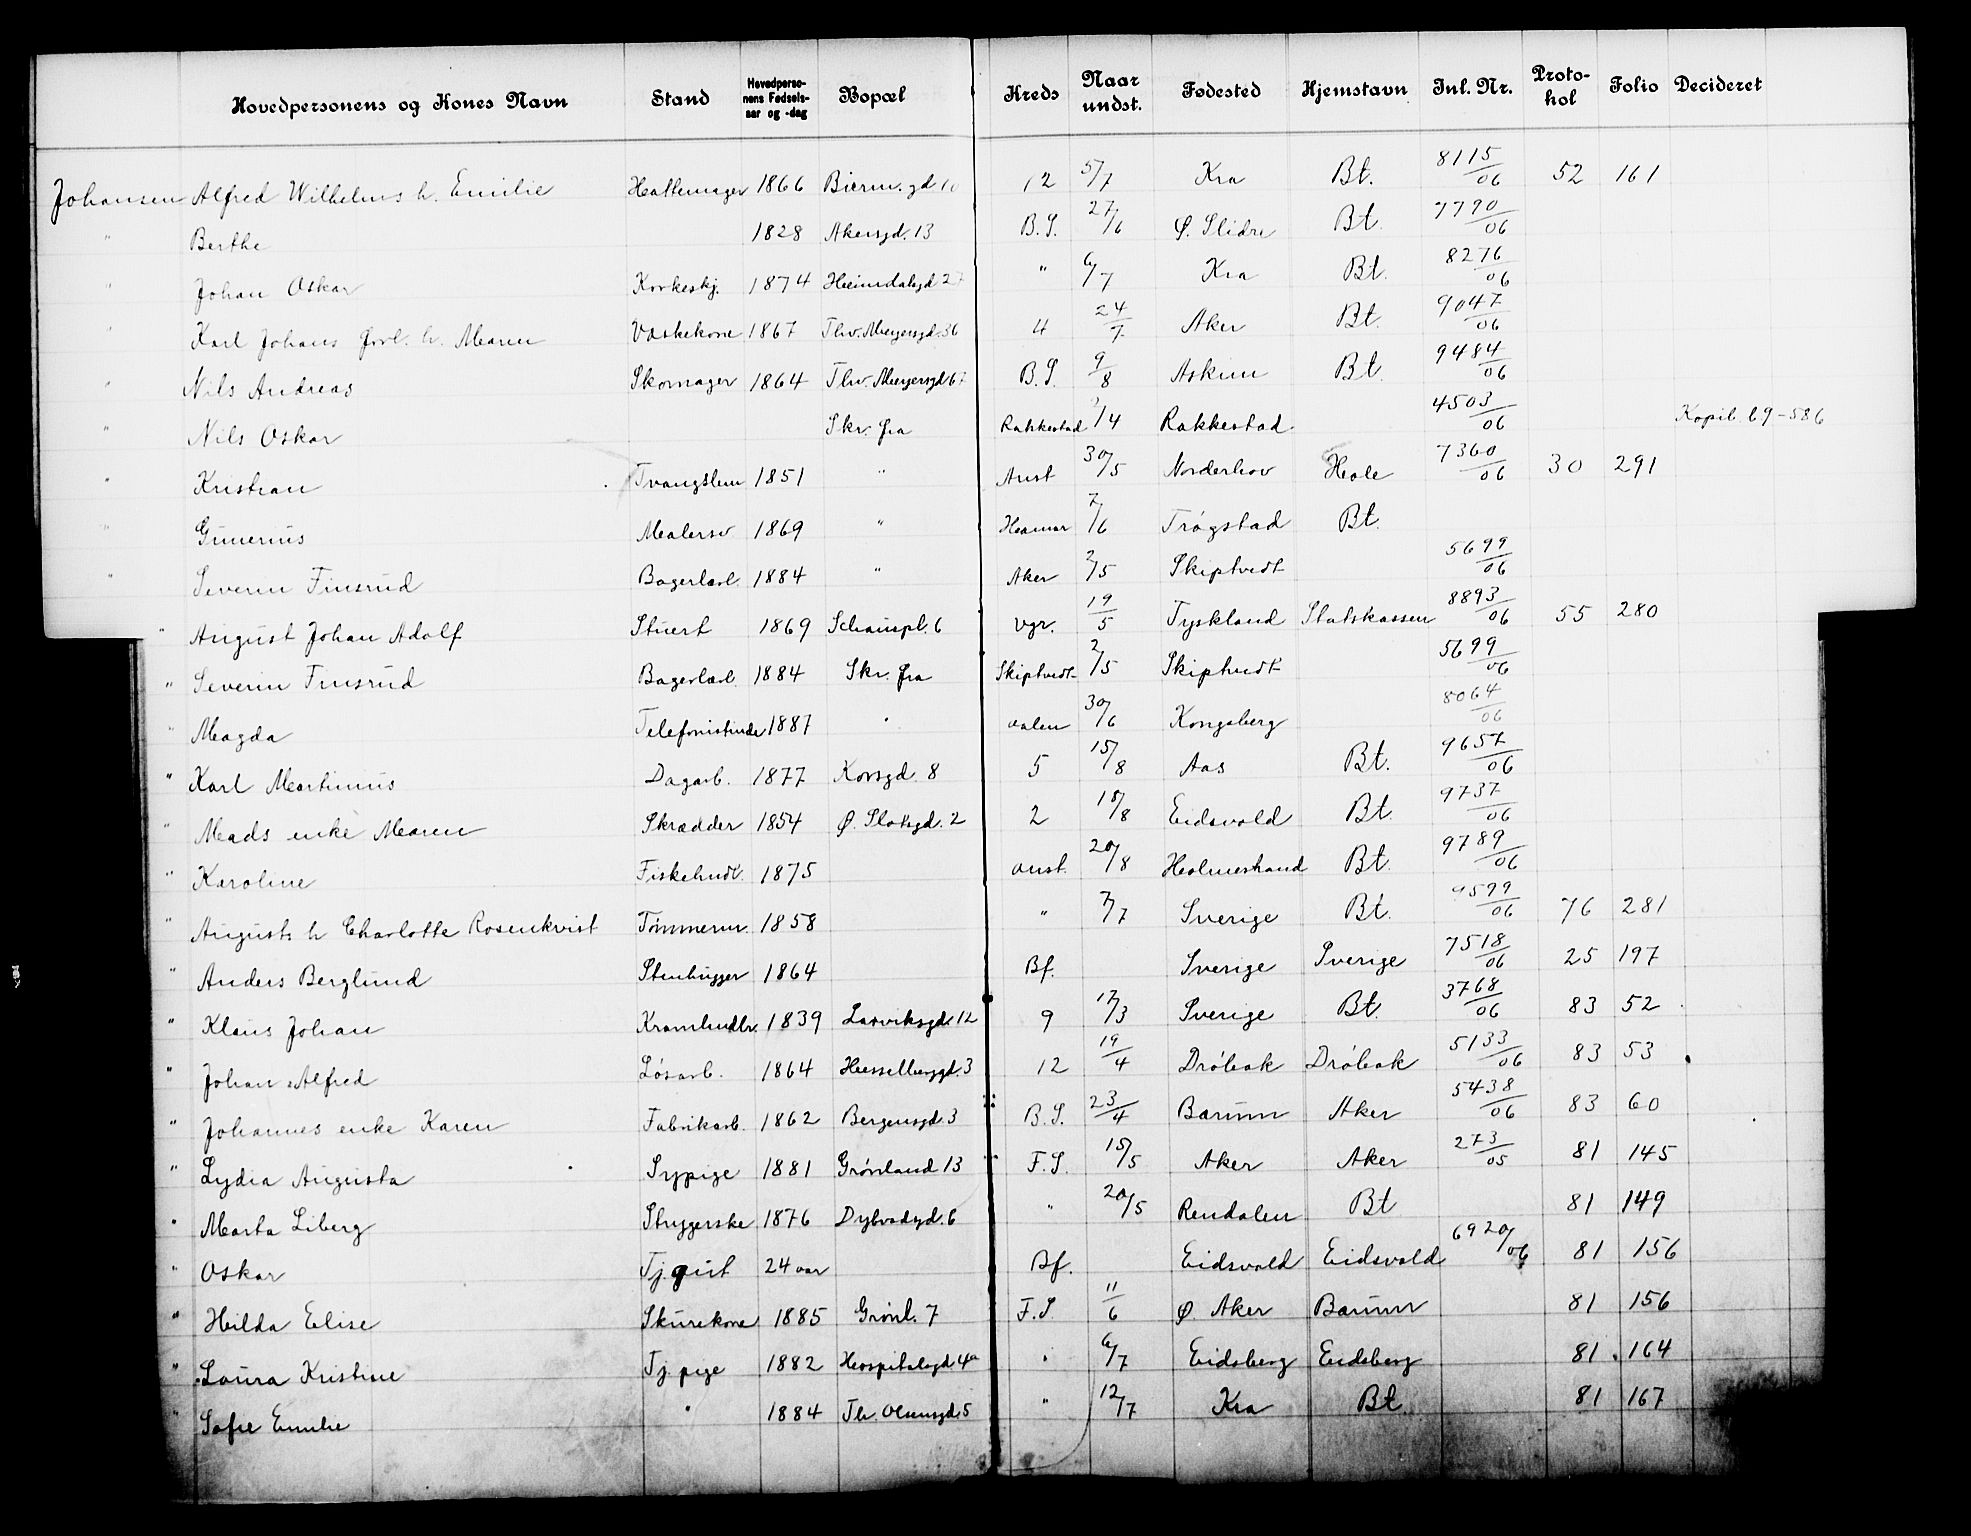 Hovedpersonens og Kones Navn Stand Hovedpersonens Fødselsaar og -dag Bopæl Kreds Naar undst. Fødested Hjemstavn Inl. Nr. Protokol Folio Decideret
Johansen Alfred Wilhelms h. Emilie Hattemager 1866 Bierm.gd 10 12 5/7 Kra Bt. 8115/06 52 161
" Berthe 1828 Akersgd. 13 B.S. 27/6 Ø. Slidre Bt. 7790/06
" Johan Oskar Korkeskj. 1874 Heimdalsgd 27 " 6/7 Kra Bt. 8276/06
" Karl Johans h. Maren Vaskekone 1867 Thv. Meyersgd. 36 4 24/7 Aker Bt. 9047/06
" Nils Andreas Skomager 1864 Thv. Meyersgd 67 B.S. 9/8 Askim Bt. 9484/06
" Nils Oskar Skr. fra Rakkestad /4 Rakkestad 4503/06 Kopib. 69-586
" Kristian Tvangslem 1851 " Anst 30/5 Norderhov Hole 7360/06 30 291
" Gunerius Malersv 1869 " Hamar 7/6 Trøgstad Bt.
" Severin Finsrud Bagerlærl. 1884 " Aker 2/5 Skiptvedt 5699/06
" August Johan Adolf Stuert 1869 Schauspl. 6 Vgr. 19/5 Tyskland Statskassen 8893/06 55 280
" Severin Finsrud Bagerlærl. 1884 Skr. fra Skiptvedt 2/5 Skiptvedt 5699/06
" Magda Telefonistinde 1887 " Aalen 30/6 Kongsberg 8064/06
" Karl Martinius Dagarb. 1877 Korsgd. 8 5 15/8 Aas Bt. 9657/06
" Mads enke Maren Skrædder 1854 Ø. Slotsgd. 2 2 18/8 Eidsvold Bt. 9737/06
" Karoline Fiskehndl. 1875 Anst. 20/8 Holmestrand Bt. 9789/06
" August h Charlotte Rosenkvist Tømmerm. 1858 " 7/7 Sverige Bt. 9599/06 76 281
" Anders Berglund Stenhugger 1864 Bf. Sverige Sverige 7518/06 25 197
" Klaus Johan Kramhndlr. 1839 Larviksgd. 12 9 17/3 Sverige Bt. 3768/06 83 52
" Johan Alfred Løsarb. 1864 Hesselberggd. 3 12 19/4 Drøbak Drøbak 5133/06 83 53
" Johannes enke Karen Fabrikarb. 1862 Bergensgd. 3 B.S. 23/4 Bærum Aker 5438/06 83 60
" Lydia Augusta Sypige 1881 Grønland 13 F.S. 15/5 Aker Aker 273/05 81 145
" Marta Liberg Strygerske 1876 Dybvadgd. 6 " 20/5 Rendalen Bt 81 149
" Oskar Tj.gut 24 aar Bf. Eidsvold Eidsvold 6920/06 81 156
" Hilda Elise Skurekone 1885 Grønl. 7 F.S. 11/6 Ø. Aker Bærum 81 156
" Laura Kristine Tj.pige 1882 Hospitalsgd 4a " 6/7 Eidsberg Eidsberg 81 164
" Sofie Emilie " 1884 Th. Olsensgd. 5 " 12/7 Kra Bt 81 167